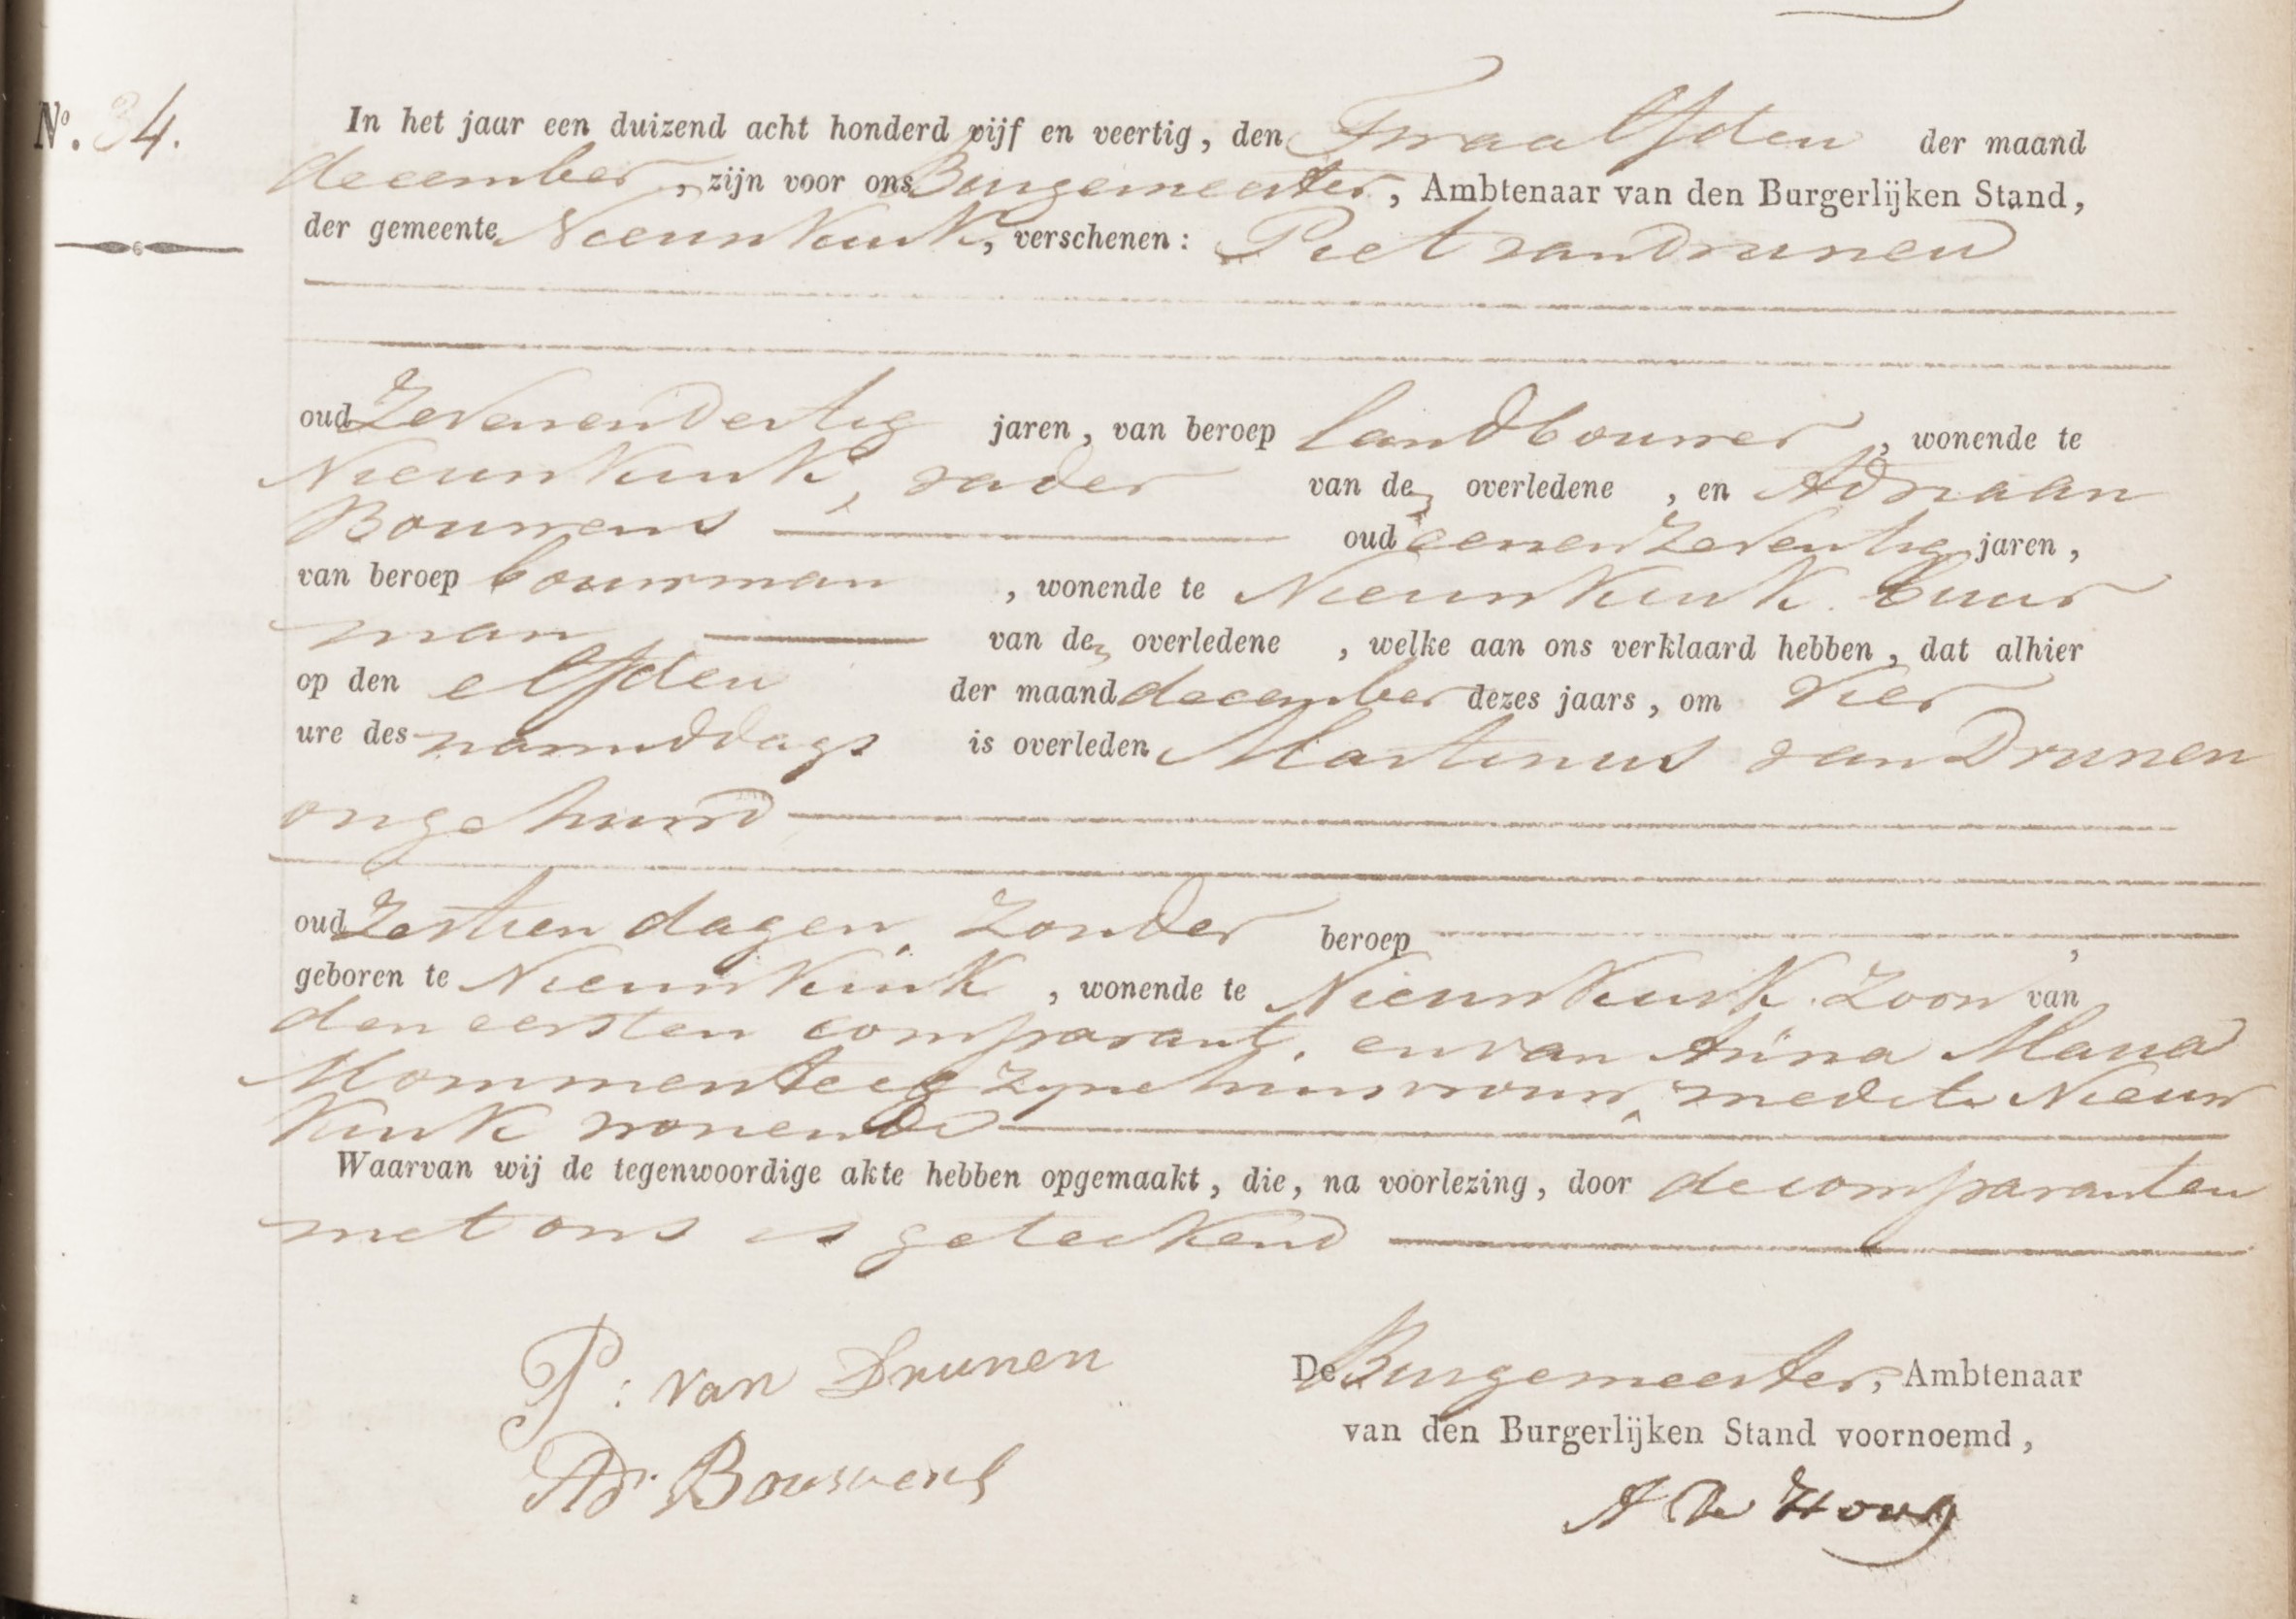 No. 34.
In het jaar een duizend acht honderd vijf en veertig, den Twaalfden der maand
december, zijn voor ons Burgemeester, Ambtenaar van den Burgerlijken Stand,
der gemeente Nieuwkuik, verschenen: Piet van Drunen
oud Zevenendertig jaren, van beroep landbouwer, wonende te
Nieuwkuik, vader van den overledene, en Adriaan
Bouwens oud eenenzeventig jaren,
van beroep bouwman, wonende te Nieuwkuik. buur
man van den overledene, welke aan ons verklaard hebben, dat alhier
op den elfden der maand december dezes jaars, om vier
ure des namiddags is overleden Martinus van Drunen
ongehuwd
oud Zestien dagen, Zonder beroep,
geboren te Nieuwkuik, wonende te Nieuwkuik. Zoon van
den eersten comparant, en van Anna Maria
Mommersteeg zyne huisvrouw, mede te Nieuw
kuik wonende
Waarvan wij de tegenwoordige akte hebben opgemaakt, die, na voorlezing, door de comparanten
met ons is geteekend
P: van Drunen
De Burgemeester, Ambtenaar
van den Burgerlijken Stand voornoemd,
Ad. Bouwens